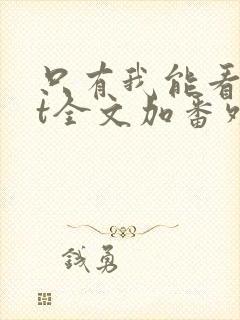 只有我能看
t全文加番外
钱勇